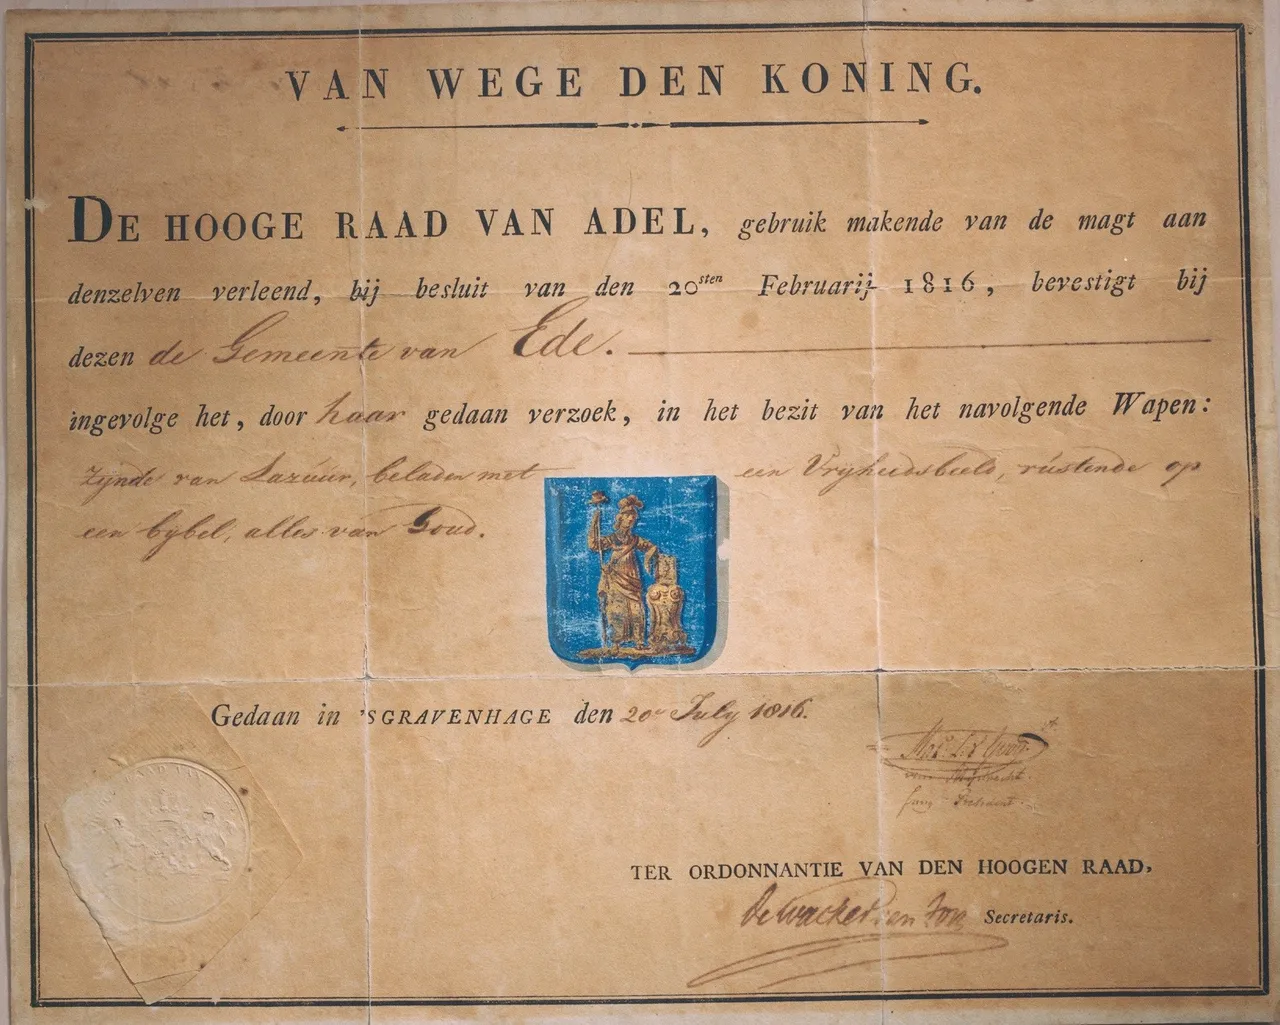 VAN WEGE DEN KONING.
DE HOOGE RAAD VAN ADEL, gebruik makende van de magt aan
denzelven verleend, bij besluit van den 20sten Februarij 1816, bevestigt bij
dezen de Gemeente van Ede.
ingevolge het, door haar gedaan verzoek, in het bezit van het navolgende Wapen:
zynde van Lazuur, beladen met een Vryheidsbeeld, rustende op
een bybel, alles van Goud.
Gedaan in 'SGRAVENHAGE den 20 July 1816.
TER ORDONNANTIE VAN DEN HOOGEN RAAD,
Secretaris.